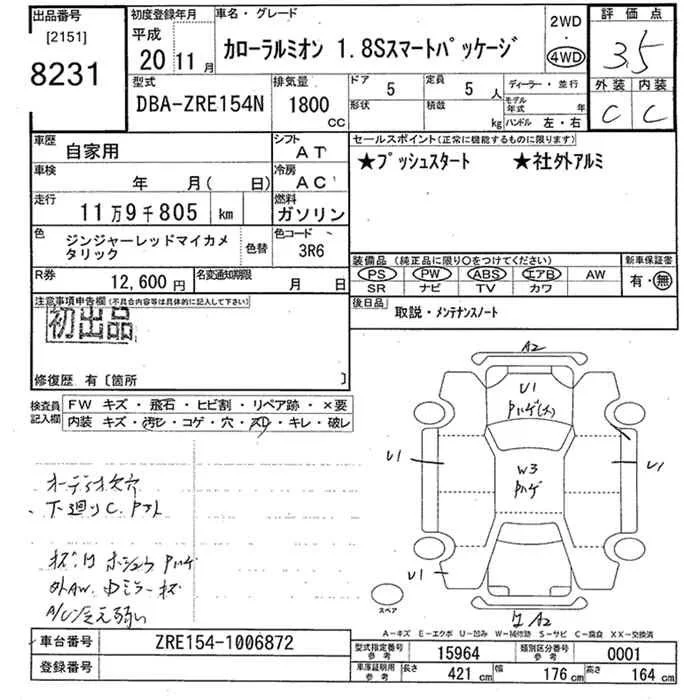 出品番号
[2151]
8231
初度登録年月
平成
20年11月
車名・グレード
カローラルミオン 1.8Sスマートパッケージ
2WD
・
4WD
評価点
3.5
外装 内装
C C
型式
DBA-ZRE154N
排気量
1800
CC
ドア
5
定員
5人
形状
積載
kg
ディーラー・並行
モデル年式 年
ハンドル 左・右
車歴
自家用
シフト
AT
車検
年 月( 日)
冷房
AC
走行
11万9千805 km
燃料
ガソリン
色
ジンジャーレッドマイカメタリック
色替
色コード
3R6
R券
12,600円
名変通知期限
月 日
セールスポイント(正常に機能するものに限ります)
★プッシュスタート ★社外アルミ
装備品(純正品に限り○をつけてください)
PS PW ABS エアB AW
SR ナビ TV カワ
新車保証書
有・無
後日品
取説・メンテナンスノート
注意事項申告欄(不具合内容等は具体的に記入して下さい)
初出品
修復歴 有〔箇所 〕
検査員記入欄
FW キズ・飛石・ヒビ割・リペア跡・×要
内装 キズ・汚レ・コゲ・穴・スレ・キレ・破レ
オーディオ欠穴
下廻りC.
外AW.
A/C冷え弱い
A2
U1
ハゲ(大)
U1
W3
ハゲ
U1
U1
A2
スペア
A-キズ E-エクボ U-凹み W-補修跡 S-サビ C-腐食 XX-交換済
車台番号
ZRE154-1006872
登録番号
型式指定番号参考
15964
類別区分番号参考
0001
車庫証明用参考
長さ 421cm
幅 176cm
高さ 164cm